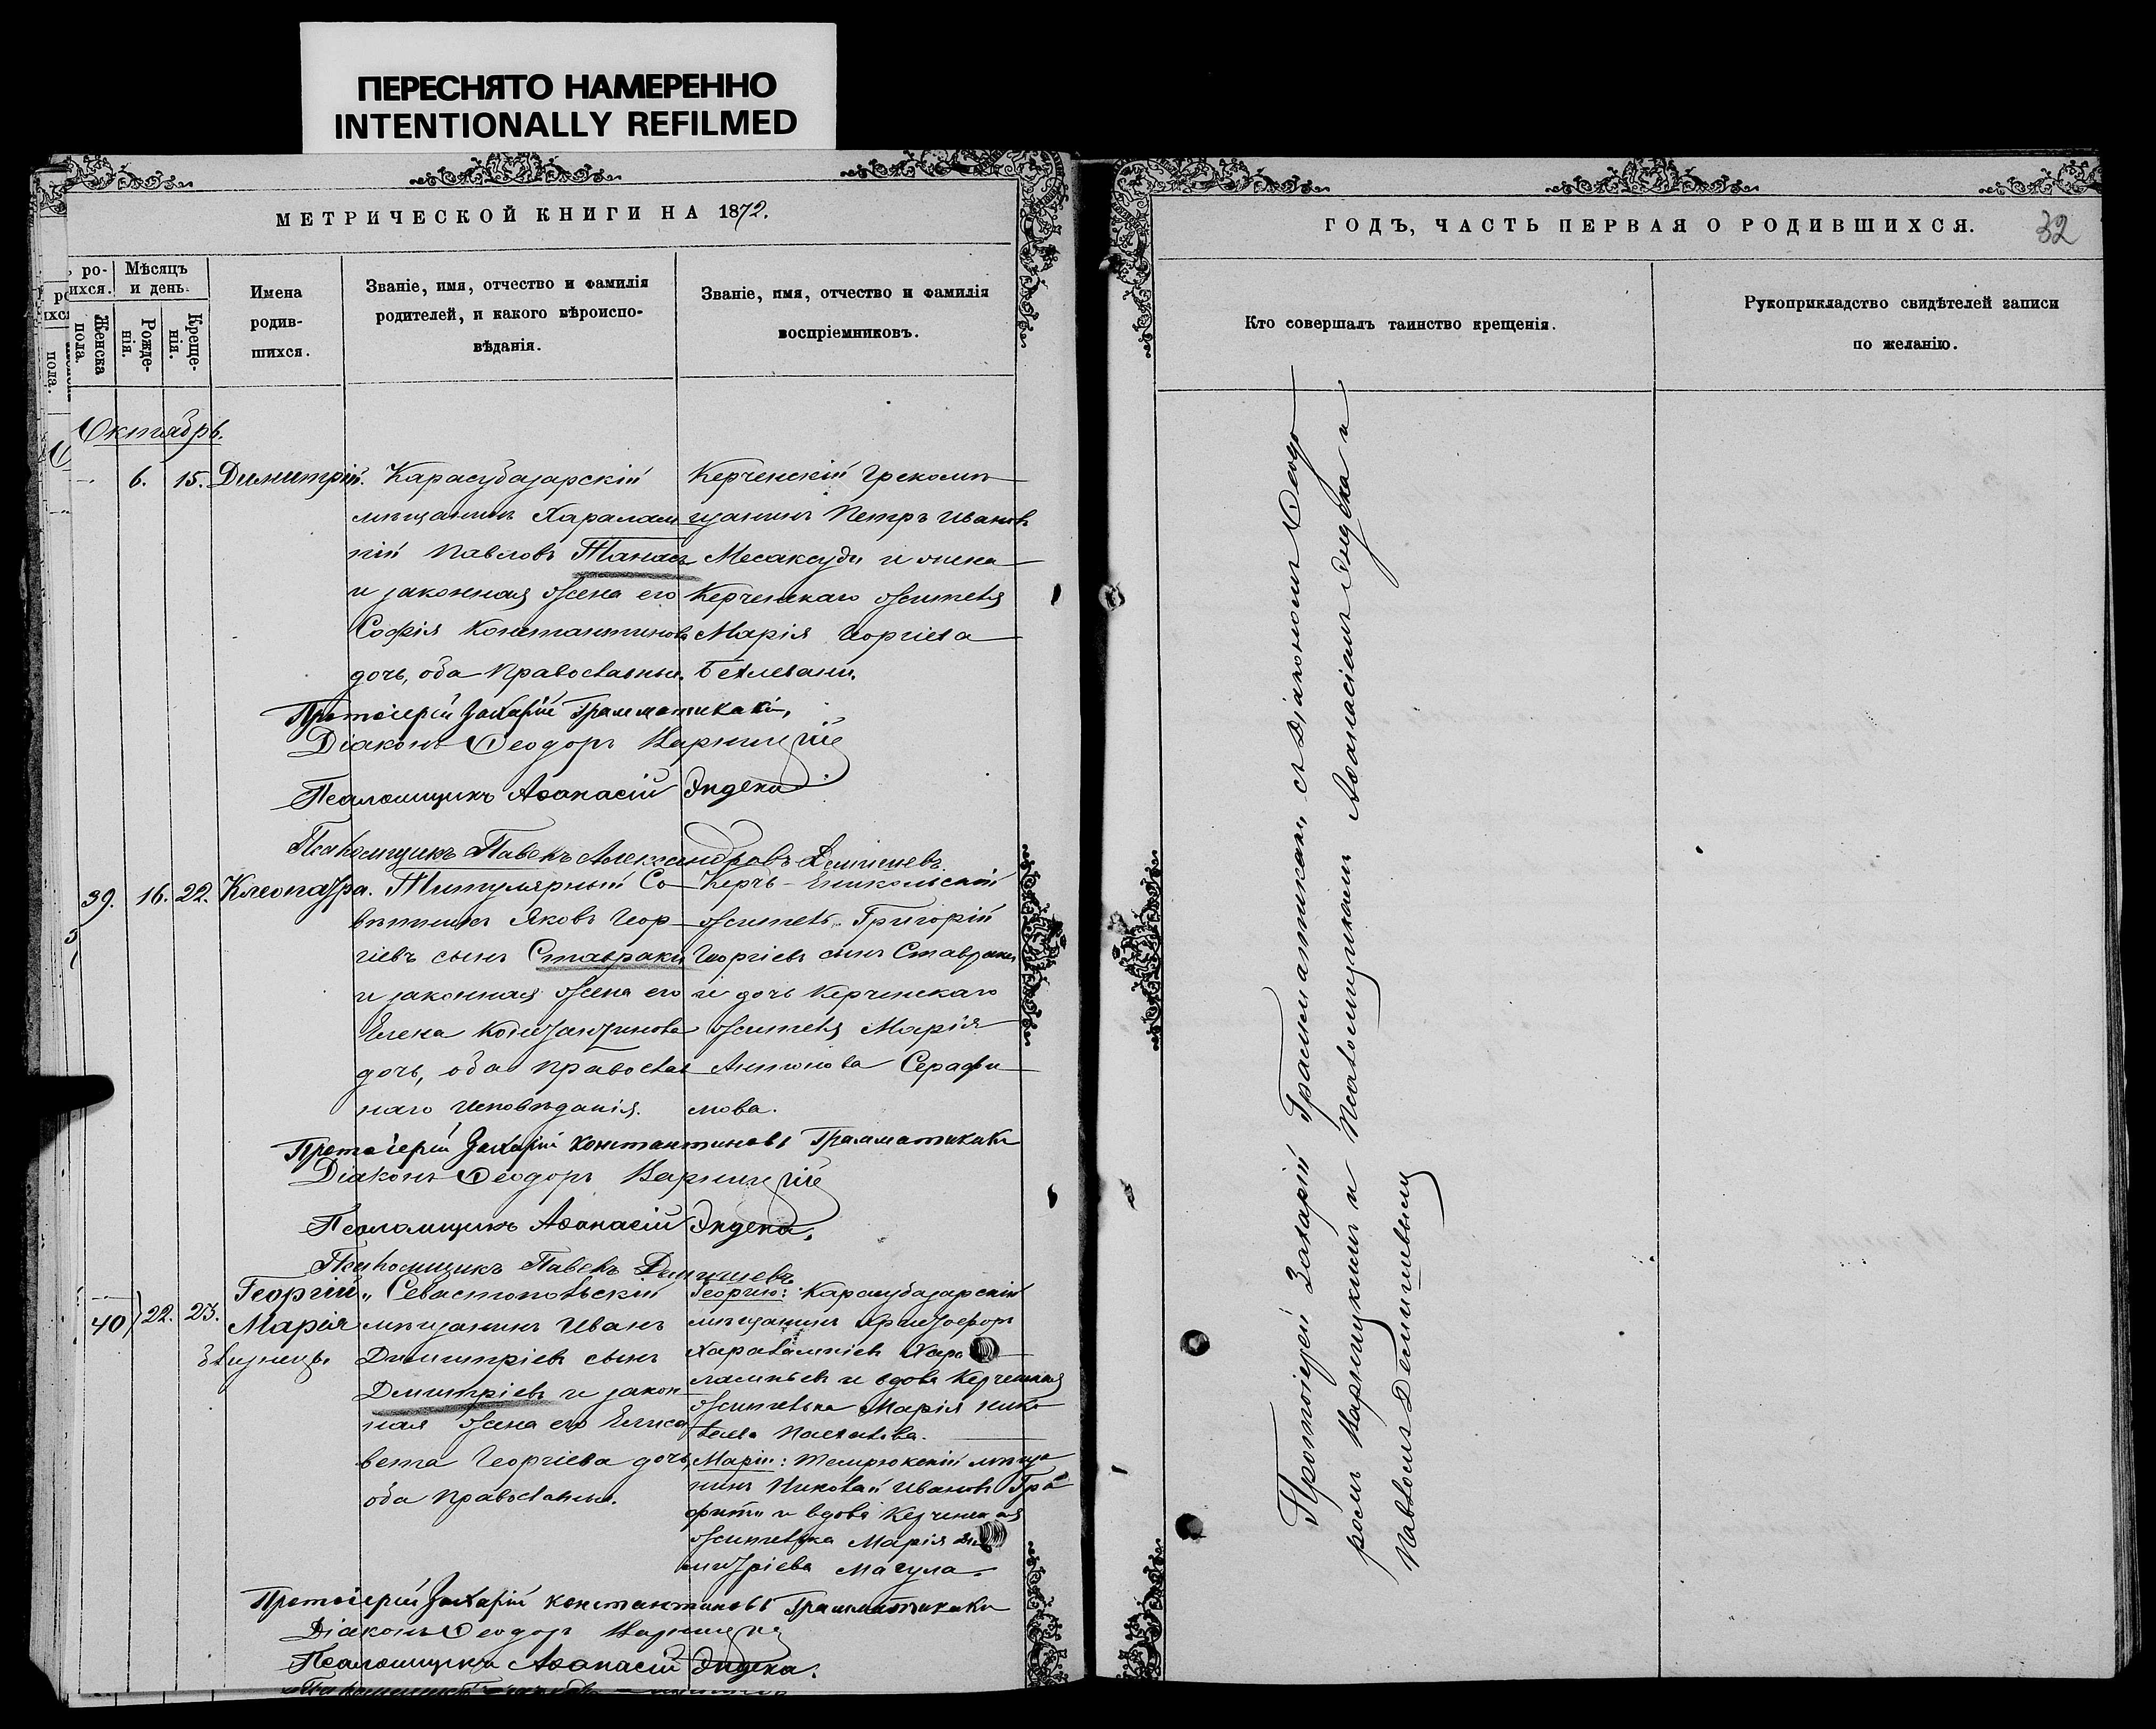 ПЕРЕСНЯТО НАМЕРЕННО
INTENTIONALLY REFILMED
МЕТРИЧЕСКОЙ КНИГИ НА 1872.
ро-
ихся.
Мѣсяцъ
и день.
Женска
пола.
Рожде-
нія.
Креще-
нія.
Имена
родив-
шихся.
Званіе, имя, отчество и фамилія
родителей, и какого вѣроиспо-
вѣданія.
Званіе, имя, отчество и фамилія
воспріемниковъ.
Октябрь.
6. 15. Димитрій.
Карасубазарскій
мѣщанинъ Харалам
пій Павловъ Танасъ
и законная жена его
Софія Константинова
дочь, оба православные.
Керченскій Грекомѣ
щанинъ Петръ Ивановъ
Месаксуди и жена
Керченскаго жителя
Марія Георгіева
Протоіерей Захарій Грамматикаки,
Діаконъ Ѳеодоръ Варницкій
Псаломщикъ Аѳанасій Эндека
Псаломщикъ Павелъ Александровъ Демишевъ
39. 16. 22. Клеопатра.
Титулярный Со
вѣтникъ Яковъ Геор
гіевъ сынъ Ставраки
и законная жена его
Елена Константинова
дочь, оба православ
наго исповѣданія.
Керчь-Еникольскій
житель Григорій
Георгіевъ сынъ Ставраки
и дочь Керченскаго
жителя Марія
Антонова Серафи
мова.
Протоіерей Захарій Константиновъ Грамматикаки
Діаконъ Ѳеодоръ Варницкій
Псаломщикъ Аѳанасій Эндека.
Псаломщикъ Павелъ Демишевъ
40 22. 23.
Георгій
Марія
близнецы
Севастопольскій
мѣщанинъ Иванъ
Димитріевъ сынъ
Дмитріевъ и закон
ная жена его Елиса
вета Георгіева дочь,
оба православные.
Георгію: Карасубазарскій
мѣщанинъ Христофоръ
Харалампіевъ Хара
лампьевъ и вдова Керченская
жителька Марія Нико
лаева
Маріи: Темрюкскій мѣща
нинъ Николай Ивановъ
и вдова Керченская
жителька Марія Ди
митріева Магула.
Протоіерей Захарій Константиновъ Грамматикаки
Діаконъ Ѳеодоръ Варницкій
Псаломщикъ Аѳанасій Эндека.
ГОДЪ, ЧАСТЬ ПЕРВАЯ О РОДИВШИХСЯ.
32
Кто совершалъ таинство крещенія.
Рукоприкладство свидѣтелей записи
по желанію.
Протоіерей Захарій Грамматикаки, съ Діакономъ Ѳеодо
ромъ Варницкимъ и Псаломщиками Аѳанасіемъ Эндека и
Павломъ Демишевымъ